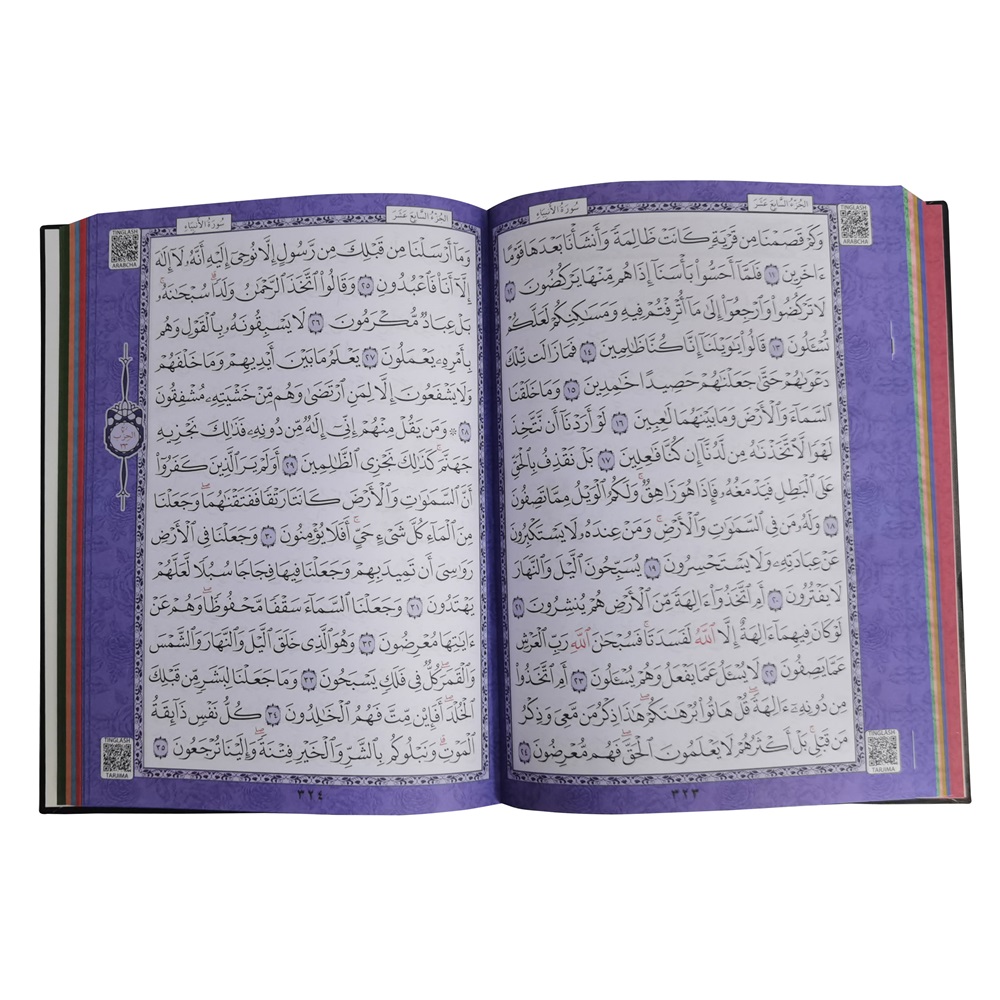 الجُزءُ السَّابِعَ عَشَرَ
سُورَةُ الأَنبِيَاءِ
TINGLASH
ARABCHA
وَكَمۡ قَصَمۡنَا مِن قَرۡيَةٖ كَانَتۡ ظَالِمَةٗ وَأَنشَأۡنَا بَعۡدَهَا قَوۡمًا
ءَاخَرِينَ ١١ فَلَمَّآ أَحَسُّواْ بَأۡسَنَآ إِذَا هُم مِّنۡهَا يَرۡكُضُونَ ١٢
لَا تَرۡكُضُواْ وَٱرۡجِعُوٓاْ إِلَىٰ مَآ أُتۡرِفۡتُمۡ فِيهِ وَمَسَٰكِنِكُمۡ لَعَلَّكُمۡ
تُسۡـَٔلُونَ ١٣ قَالُواْ يَٰوَيۡلَنَآ إِنَّا كُنَّا ظَٰلِمِينَ ١٤ فَمَا زَالَت تِّلۡكَ
دَعۡوَىٰهُمۡ حَتَّىٰ جَعَلۡنَٰهُمۡ حَصِيدًا خَٰمِدِينَ ١٥ وَمَا خَلَقۡنَا
ٱلسَّمَآءَ وَٱلۡأَرۡضَ وَمَا بَيۡنَهُمَا لَٰعِبِينَ ١٦ لَوۡ أَرَدۡنَآ أَن نَّتَّخِذَ
لَهۡوٗا لَّٱتَّخَذۡنَٰهُ مِن لَّدُنَّآ إِن كُنَّا فَٰعِلِينَ ١٧ بَلۡ نَقۡذِفُ بِٱلۡحَقِّ
عَلَى ٱلۡبَٰطِلِ فَيَدۡمَغُهُۥ فَإِذَا هُوَ زَاهِقٞۚ وَلَكُمُ ٱلۡوَيۡلُ مِمَّا تَصِفُونَ
١٨ وَلَهُۥ مَن فِي ٱلسَّمَٰوَٰتِ وَٱلۡأَرۡضِۚ وَمَنۡ عِندَهُۥ لَا يَسۡتَكۡبِرُونَ
عَنۡ عِبَادَتِهِۦ وَلَا يَسۡتَحۡسِرُونَ ١٩ يُسَبِّحُونَ ٱلَّيۡلَ وَٱلنَّهَارَ
لَا يَفۡتُرُونَ ٢٠ أَمِ ٱتَّخَذُوٓاْ ءَالِهَةٗ مِّنَ ٱلۡأَرۡضِ هُمۡ يُنشِرُونَ ٢١
لَوۡ كَانَ فِيهِمَآ ءَالِهَةٌ إِلَّا ٱللَّهُ لَفَسَدَتَاۚ فَسُبۡحَٰنَ ٱللَّهِ رَبِّ ٱلۡعَرۡشِ
عَمَّا يَصِفُونَ ٢٢ لَا يُسۡـَٔلُ عَمَّا يَفۡعَلُ وَهُمۡ يُسۡـَٔلُونَ ٢٣ أَمِ ٱتَّخَذُواْ
مِن دُونِهِۦٓ ءَالِهَةٗۖ قُلۡ هَاتُواْ بُرۡهَٰنَكُمۡۖ هَٰذَا ذِكۡرُ مَن مَّعِيَ وَذِكۡرُ
مَن قَبۡلِيۚ بَلۡ أَكۡثَرُهُمۡ لَا يَعۡلَمُونَ ٱلۡحَقَّۖ فَهُم مُّعۡرِضُونَ ٢٤
TINGLASH
TARJIMA
٣٢٣
الجُزءُ السَّابِعَ عَشَرَ
سُورَةُ الأَنبِيَاءِ
TINGLASH
ARABCHA
وَمَآ أَرۡسَلۡنَا مِن قَبۡلِكَ مِن رَّسُولٍ إِلَّا نُوحِيٓ إِلَيۡهِ أَنَّهُۥ لَآ إِلَٰهَ
إِلَّآ أَنَا۠ فَٱعۡبُدُونِ ٢٥ وَقَالُواْ ٱتَّخَذَ ٱلرَّحۡمَٰنُ وَلَدٗاۗ سُبۡحَٰنَهُۥۚ
بَلۡ عِبَادٞ مُّكۡرَمُونَ ٢٦ لَا يَسۡبِقُونَهُۥ بِٱلۡقَوۡلِ وَهُم
بِأَمۡرِهِۦ يَعۡمَلُونَ ٢٧ يَعۡلَمُ مَا بَيۡنَ أَيۡدِيهِمۡ وَمَا خَلۡفَهُمۡ
وَلَا يَشۡفَعُونَ إِلَّا لِمَنِ ٱرۡتَضَىٰ وَهُم مِّنۡ خَشۡيَتِهِۦ مُشۡفِقُونَ
٢٨ ۞ وَمَن يَقُلۡ مِنۡهُمۡ إِنِّيٓ إِلَٰهٞ مِّن دُونِهِۦ فَذَٰلِكَ نَجۡزِيهِ
جَهَنَّمَۚ كَذَٰلِكَ نَجۡزِي ٱلظَّٰلِمِينَ ٢٩ أَوَلَمۡ يَرَ ٱلَّذِينَ كَفَرُوٓاْ
أَنَّ ٱلسَّمَٰوَٰتِ وَٱلۡأَرۡضَ كَانَتَا رَتۡقٗا فَفَتَقۡنَٰهُمَاۖ وَجَعَلۡنَا
مِنَ ٱلۡمَآءِ كُلَّ شَيۡءٍ حَيٍّۚ أَفَلَا يُؤۡمِنُونَ ٣٠ وَجَعَلۡنَا فِي ٱلۡأَرۡضِ
رَوَٰسِيَ أَن تَمِيدَ بِهِمۡ وَجَعَلۡنَا فِيهَا فِجَاجٗا سُبُلٗا لَّعَلَّهُمۡ
يَهۡتَدُونَ ٣١ وَجَعَلۡنَا ٱلسَّمَآءَ سَقۡفٗا مَّحۡفُوظٗاۖ وَهُمۡ عَنۡ
ءَايَٰتِهَا مُعۡرِضُونَ ٣٢ وَهُوَ ٱلَّذِي خَلَقَ ٱلَّيۡلَ وَٱلنَّهَارَ وَٱلشَّمۡسَ
وَٱلۡقَمَرَۖ كُلّٞ فِي فَلَكٖ يَسۡبَحُونَ ٣٣ وَمَا جَعَلۡنَا لِبَشَرٖ مِّن قَبۡلِكَ
ٱلۡخُلۡدَۖ أَفَإِيْن مِّتَّ فَهُمُ ٱلۡخَٰلِدُونَ ٣٤ كُلُّ نَفۡسٖ ذَآئِقَةُ
ٱلۡمَوۡتِۗ وَنَبۡلُوكُم بِٱلشَّرِّ وَٱلۡخَيۡرِ فِتۡنَةٗۖ وَإِلَيۡنَا تُرۡجَعُونَ ٣٥
TINGLASH
TARJIMA
٣٢٤